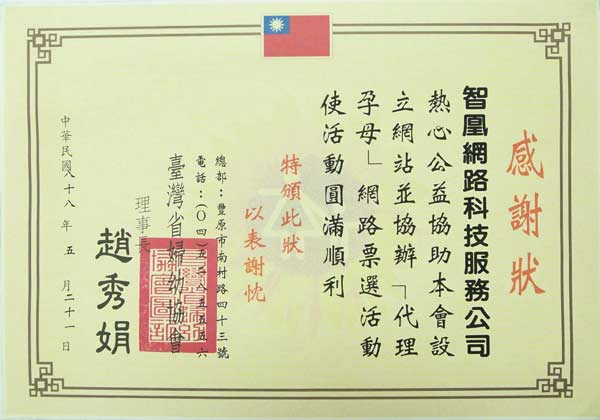 感謝狀
智凰網路科技服務公司
熱心公益協助本會設
立網站並協辦「代理
孕母」網路票選活動
使活動圓滿順利
特頒此狀
以表謝忱
總部：豐原市南村路四十三號
電話：(〇四)五二八五五五六
臺灣省婦幼協會
理事長
趙秀娟
中華民國八十八年五月二十一日